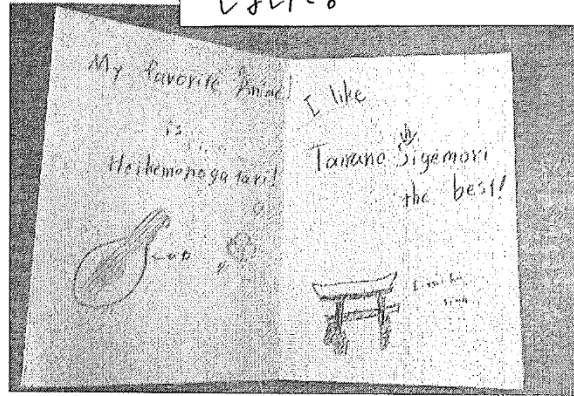 しました。
My favorite Anime!
is....
Heikemonogatari!
I like
Tairano Shigemori
the best!